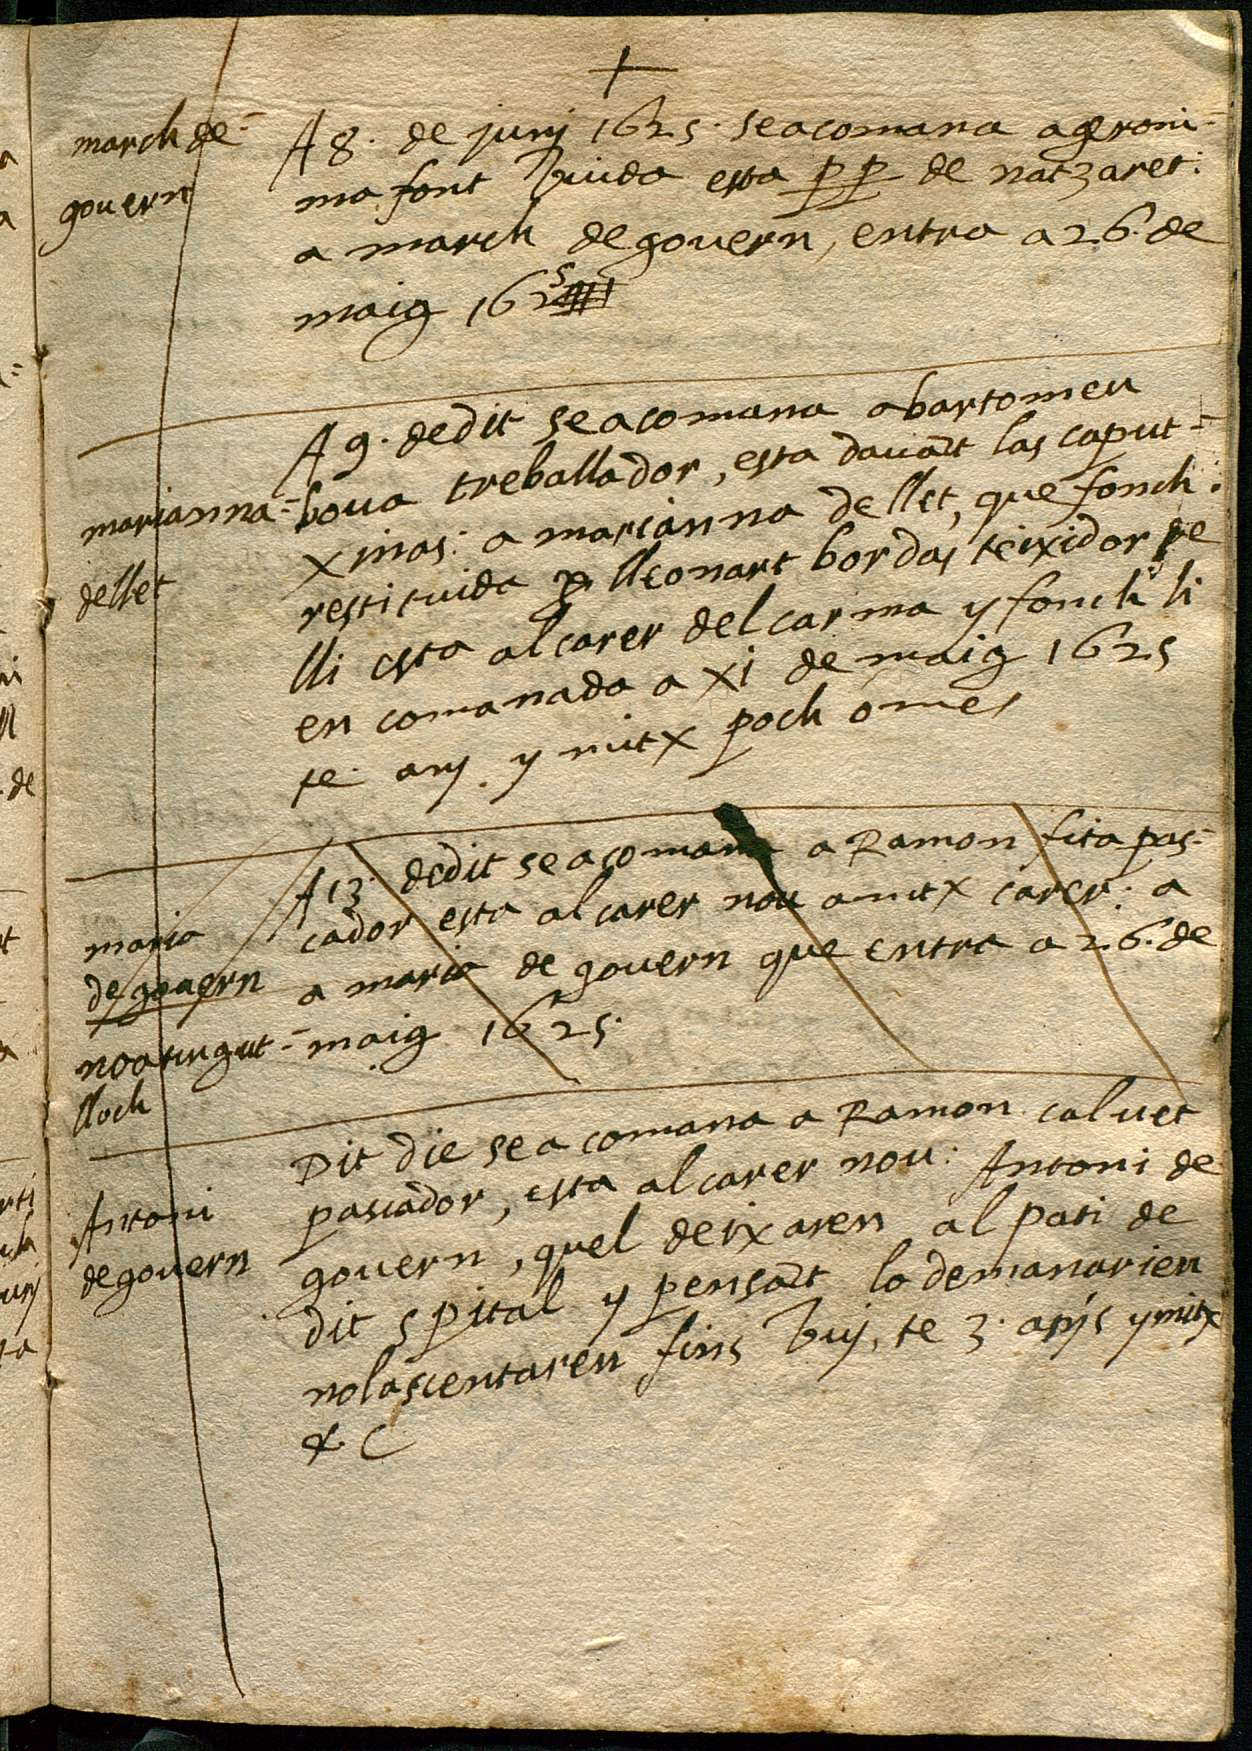 march de-
govern
A 8. de juny 1625. se acomana a geroni-
ma font viuda esta pp de natzaret:
a march de govern, entra a 26. de
maig 1625
A 9. de dit se acomana a bartomeu
bova treballador, esta davat las caput-
xinas: a marianna de llet, que fonch
restituida p lleonart bordas teixidor de
lli esta al carer del carma y fonch li
en comanada a xi de maig 1625
te. any. y mitx poch o mes
marianna-
de llet
A 13. de dit se acomana a Ramon fita pas-
cador esta al carer nou a mitx carer: a
a maria de govern que entra a 26. de
maig 1625.
maria
de govern
no a tingut-
lloch
Dit die se a comana a Ramon calvet
pascador, esta al carer nou: Antoni de
govern, quel deixaren al pati de
dit spital y pensat lo demanarien
nol ascentaren fins vuy, te 3. anys y mitx
&. C
Antoni
de govern